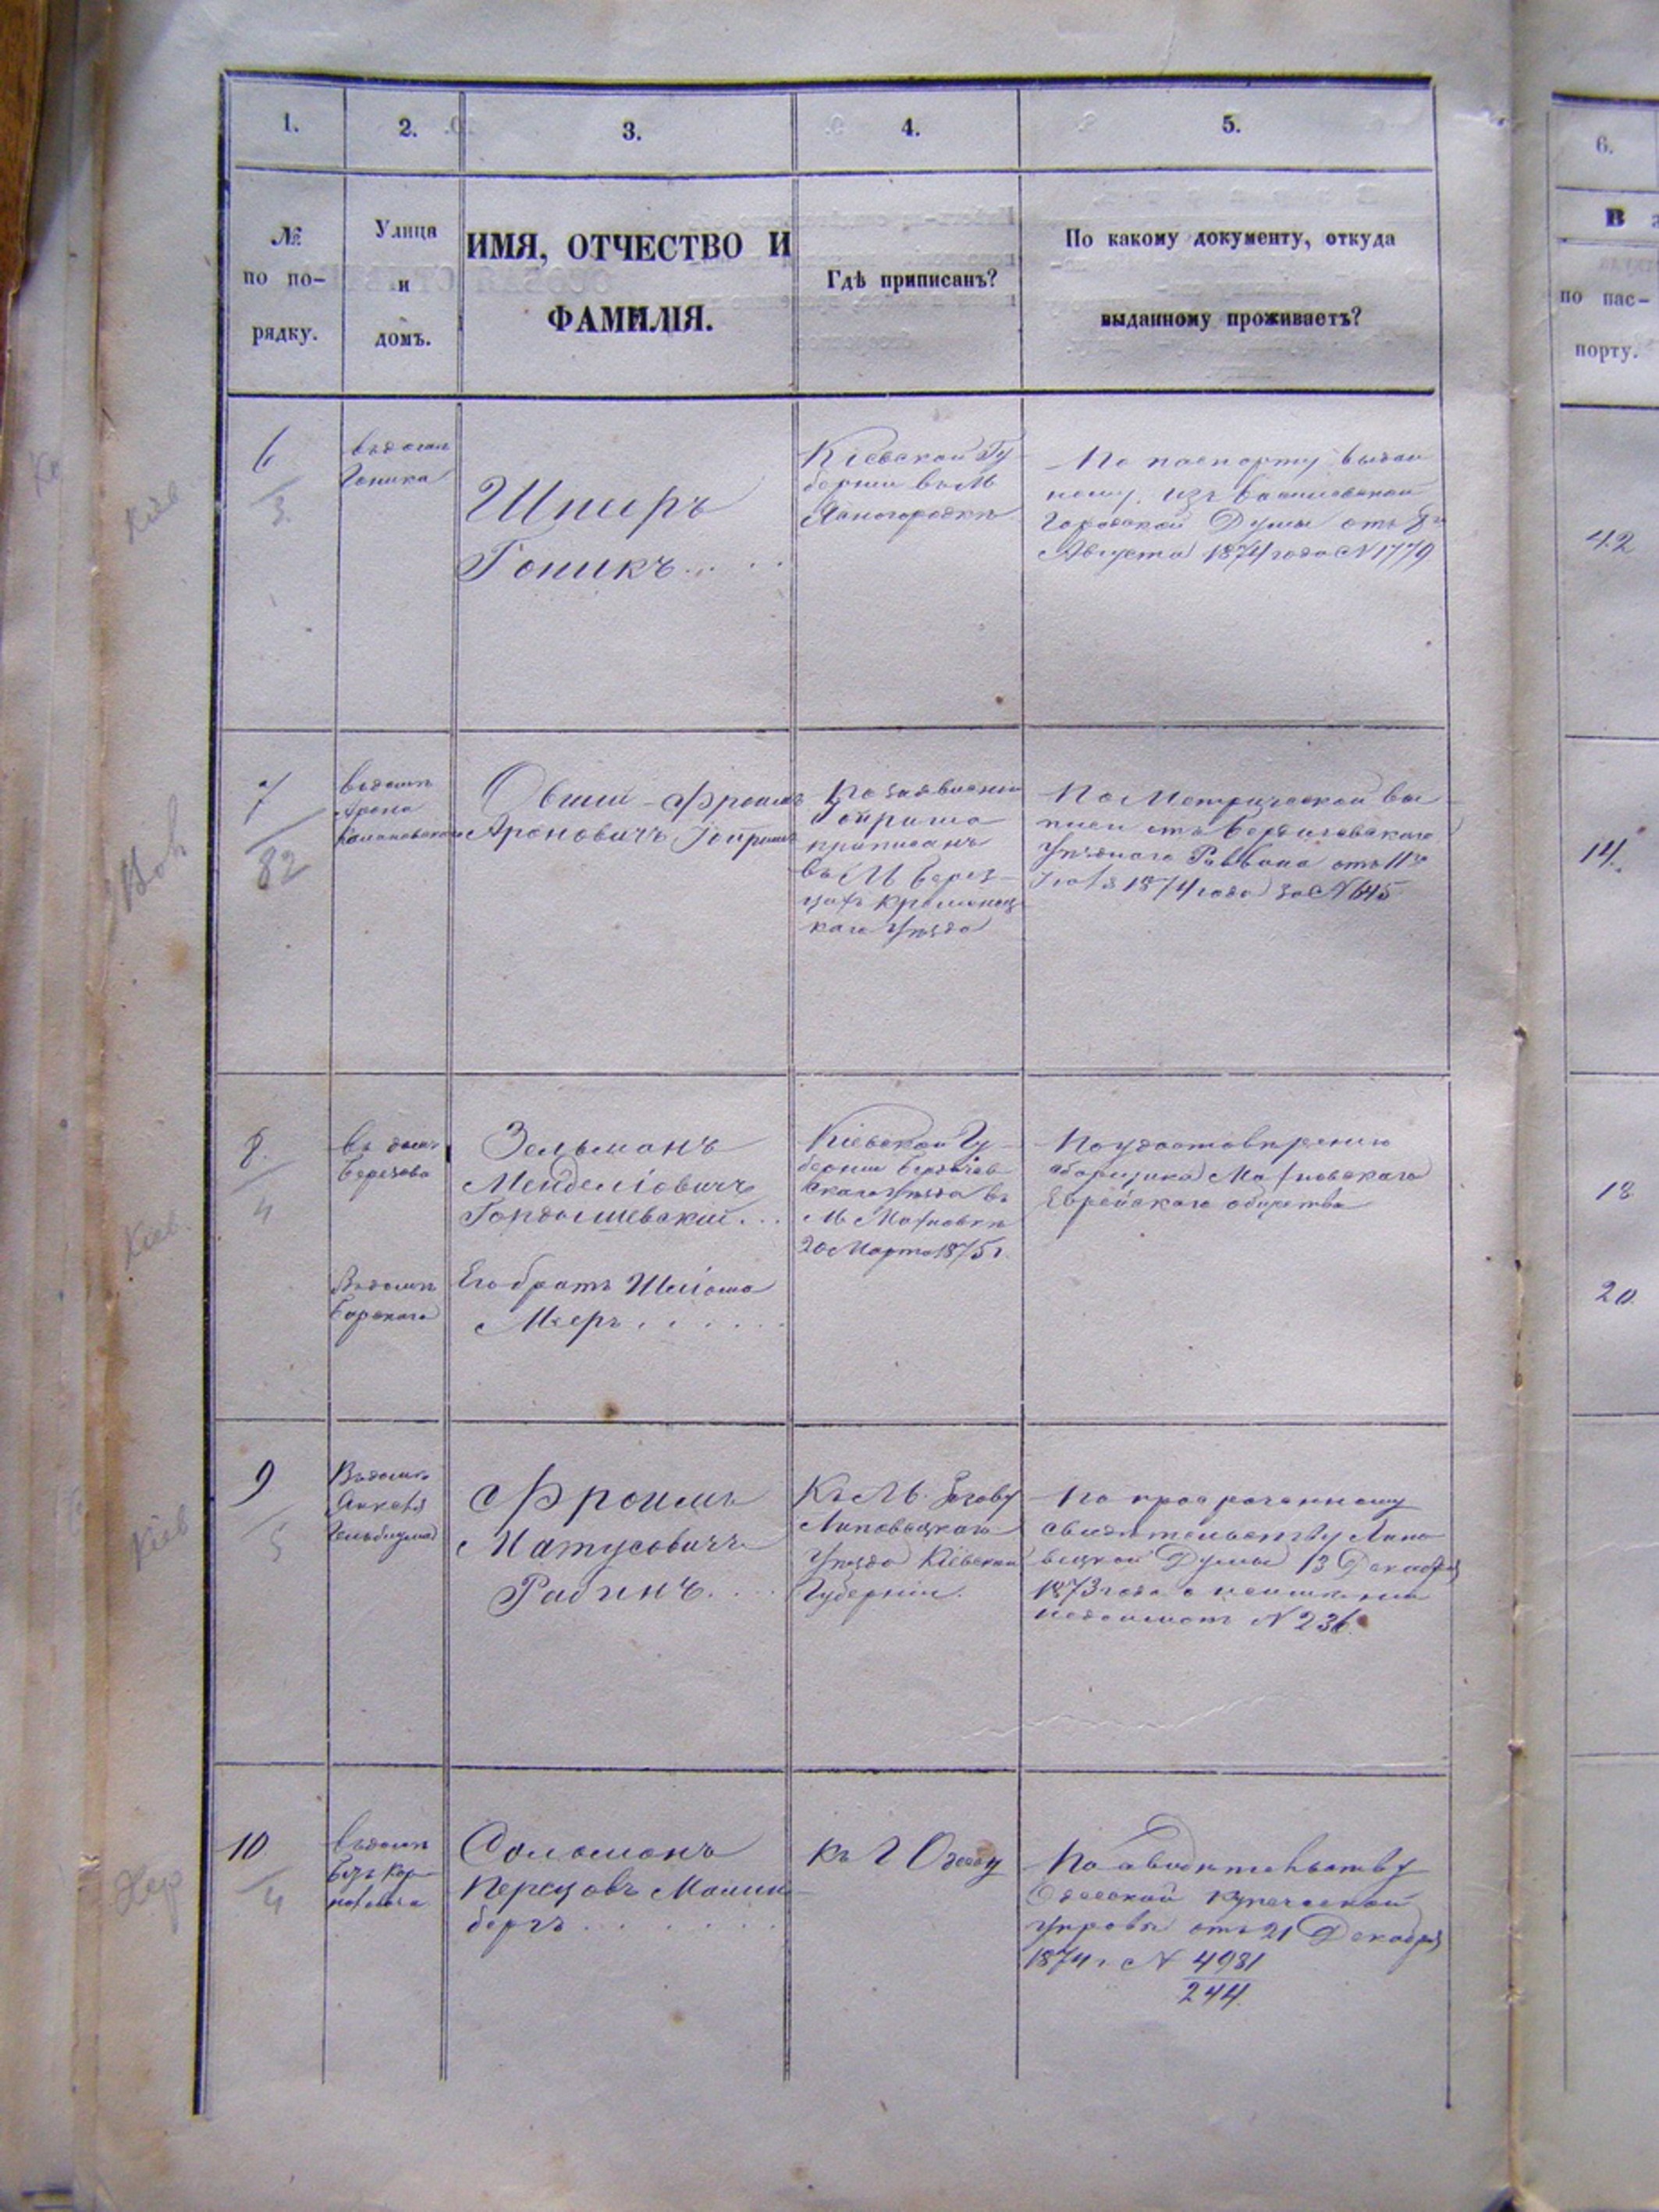 1.
2.
3.
4.
5.
6.
№
по по-
рядку.
Улица
и
домъ.
ИМЯ, ОТЧЕСТВО И
ФАМИЛІЯ.
Гдѣ приписанъ?
По какому документу, откуда
выданному проживаетъ?
В
по пас-
порту.
6
3
Кіев
Гоника
Шпиръ
Гоникъ.....
Кіевской Гу
берніи въ М
Ясногородкѣ
По паспорту выдан
ному изъ Васильковской
Городской Думы отъ 8го
Августа 1874 года №1779
42
7
82
Вол
въ домѣ
Арона
Овшій-Фроимъ
Ароновичъ
По заявленію
приписанъ
въ М Берез
цахъ Кременец
каго Уѣзда
По Метрической вы
писи отъ Бердичевскаго
Уѣзднаго Раввина отъ 11го
1874 года за №645
14.
8.
4
Кіев.
въ домѣ
Березова
Зельманъ
Менделіовичъ
Гордышевскій...
Кіевской Гу
берніи Бердичев
скаго уѣзда въ
М Махновкѣ
20 Марта 1875 г.
По удостовѣренію
сборщика Махновскаго
Еврейскаго общества
18
Въ домѣ
Барскаго
Его братъ
Мееръ......
20.
9
5
Кіев
Въ домѣ
Фроимъ
Матусовичъ
Рабинъ....
Къ М.
Липовецкаго
Уѣзда Кіевской
Губерніи.
По просроченному
свидѣтельству Липо
вецкой Думы 13 Декабря
1873 года о неимѣніи
недоимокъ №236.
10.
4
Хер
въ домѣ
Соломонъ
Перецовъ
бергъ.......
Къ Г Одессу
По свидѣтельству
Одесской купеческой
управы отъ 21 Декабря
1874 г №4981
244.